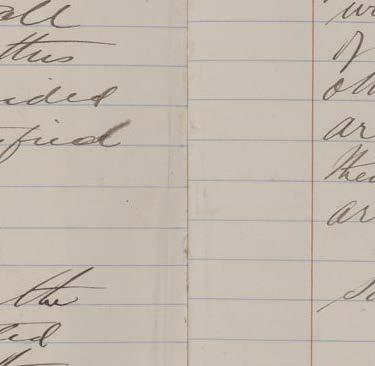 all
this
ided
ified
the
ted
of
oth
ar
the
ar